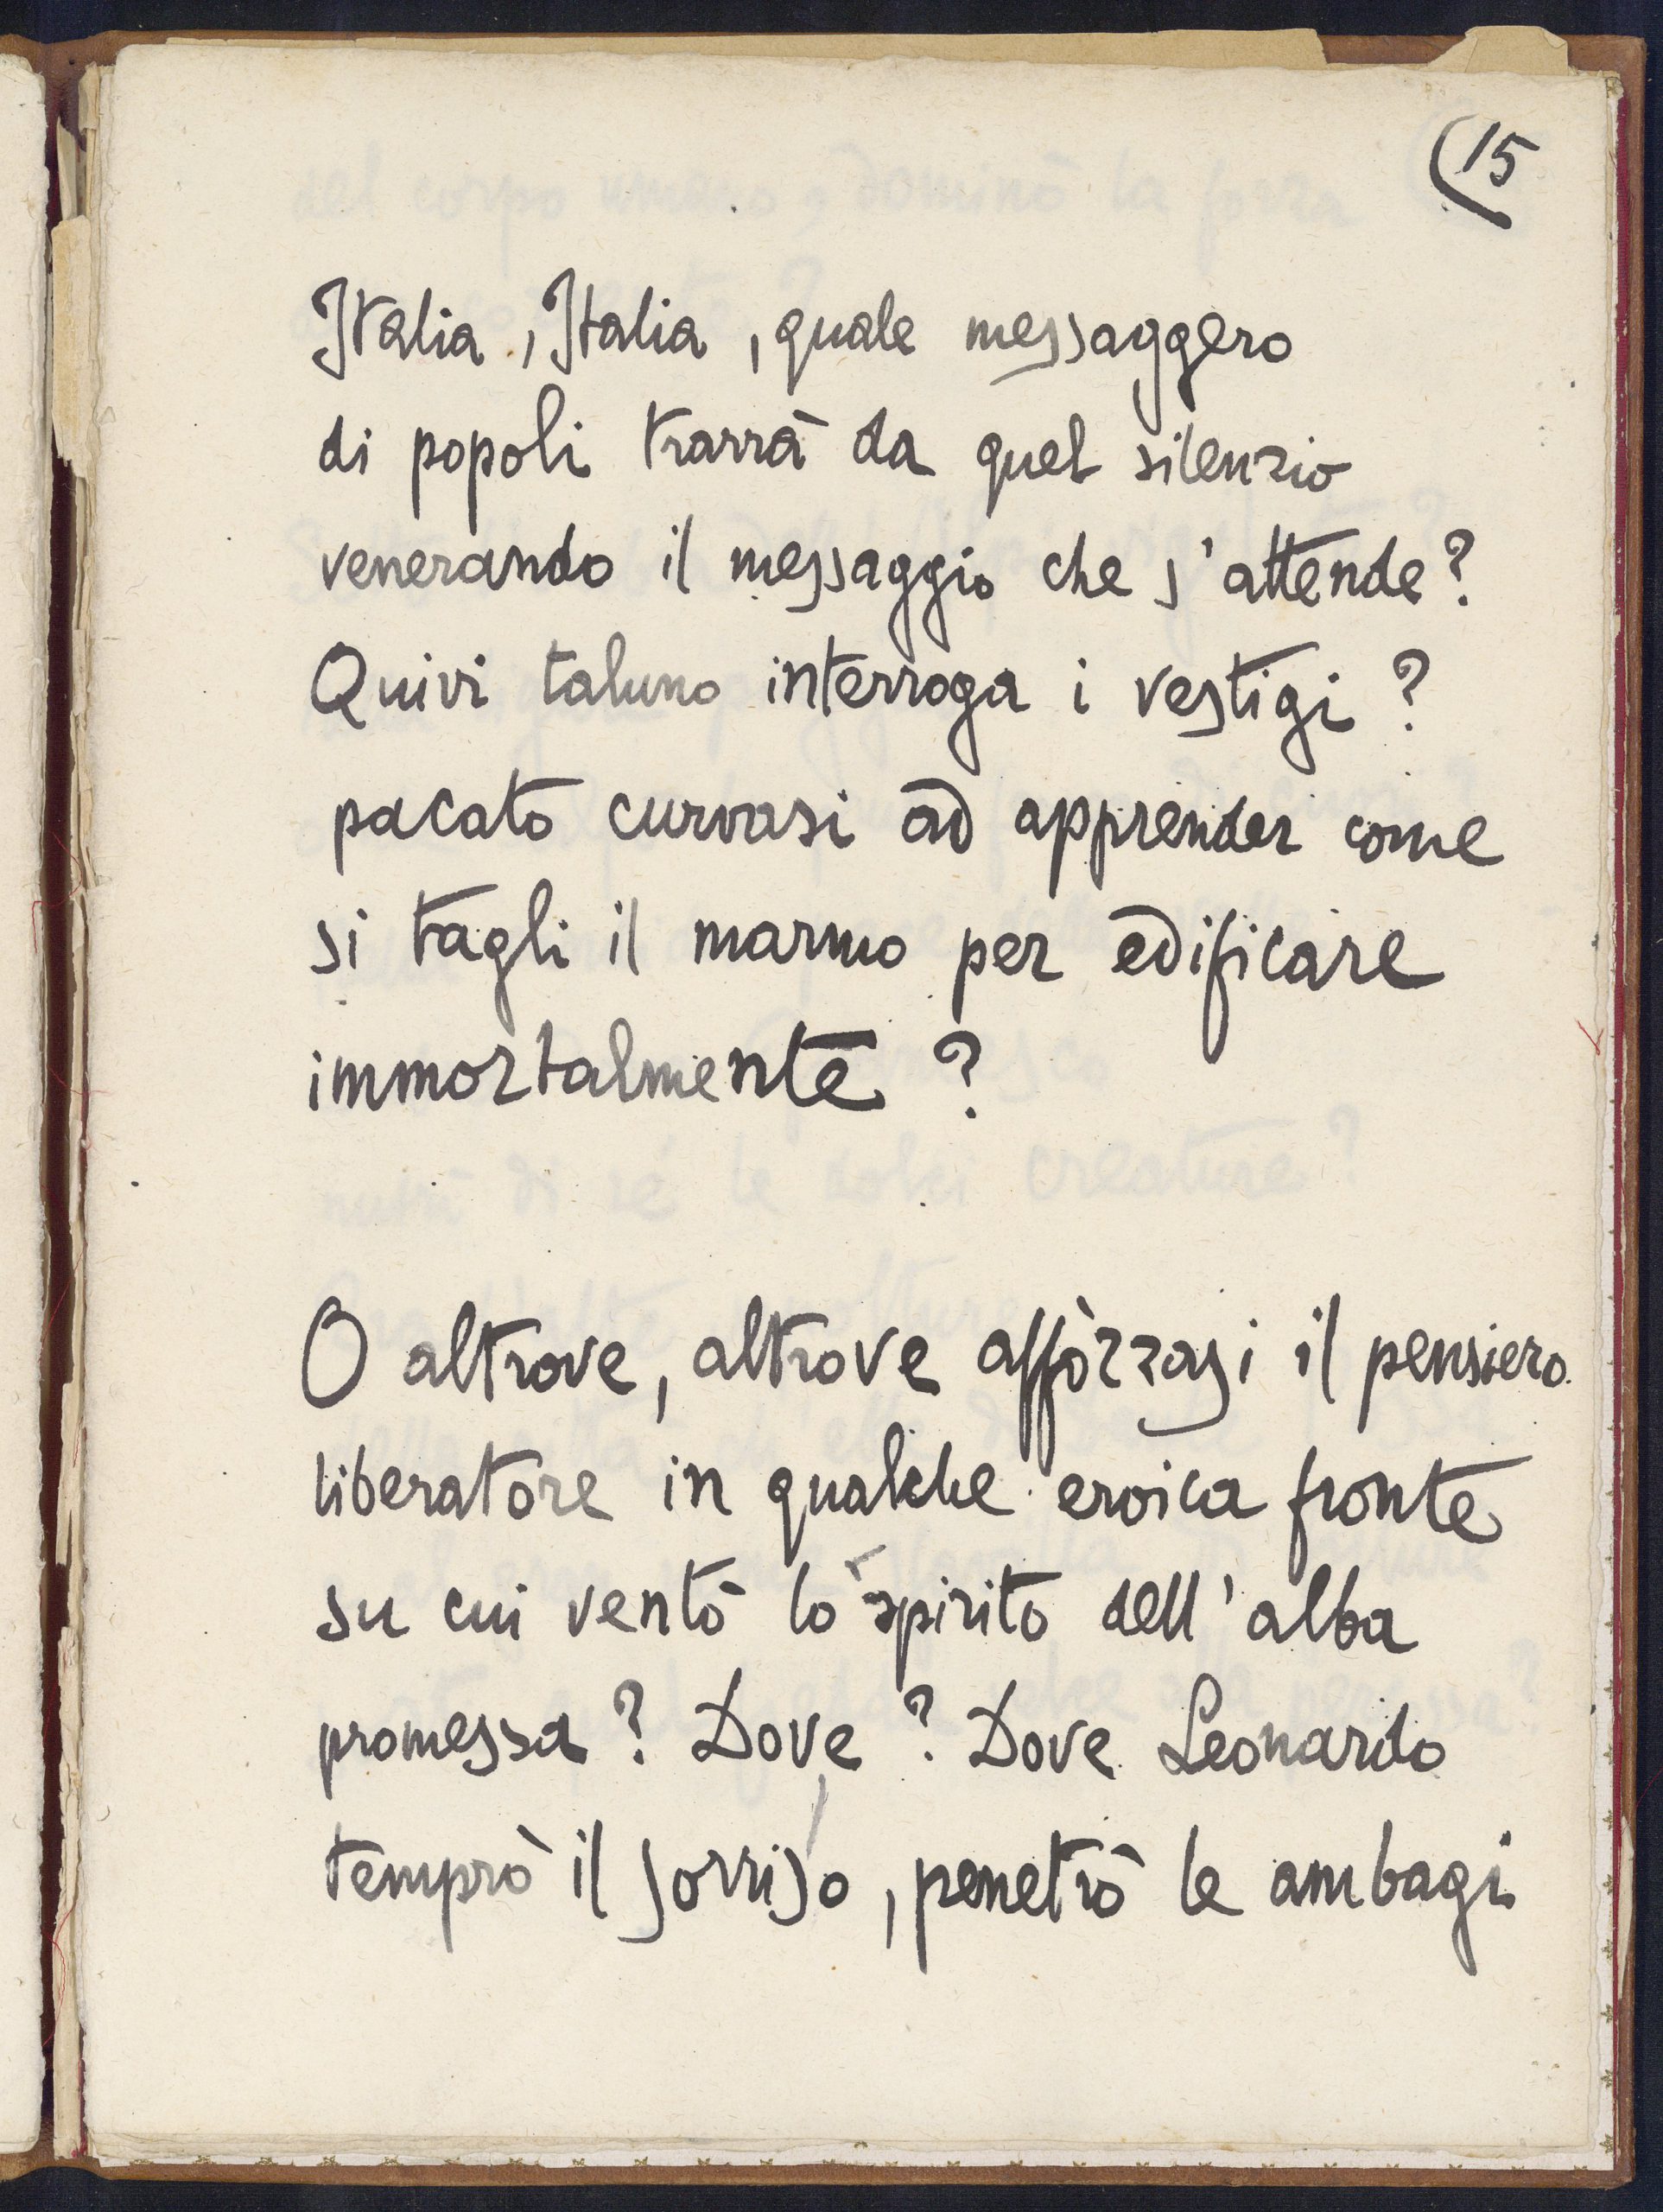 (15
Italia, Italia, quale messaggero
di popoli trarrà da quel silenzio
venerando il messaggio che s'attende?
Quivi taluno interroga i vestigi?
pacato curvasi ad apprender come
si tagli il marmo per edificare
immortalmente?
O altrove, altrove affòrzasi il pensiero
liberatore in qualche eroica fronte
su cui ventò lo spirito dell'alba
promessa? Dove? Dove Leonardo
temprò il sorriso, penetrò le ambagi